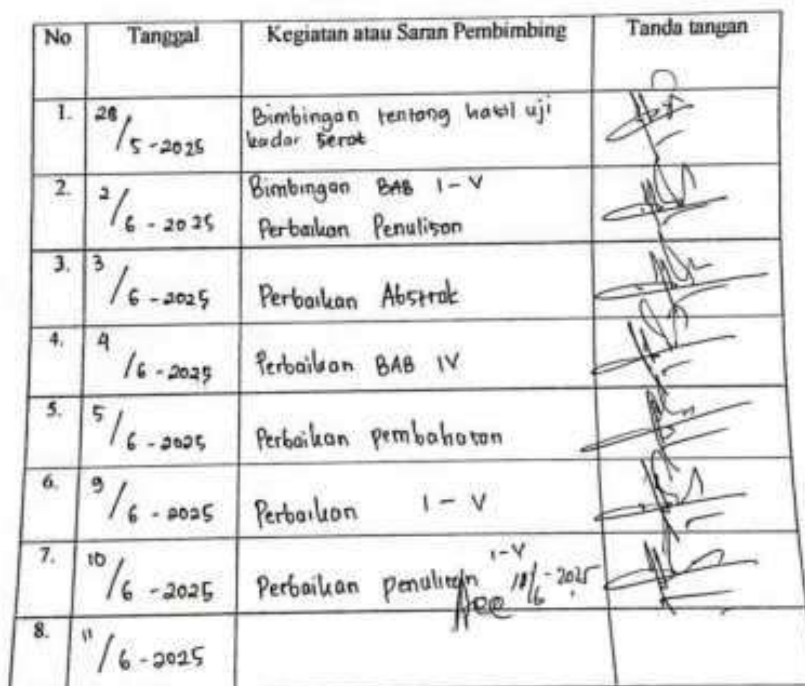 No Tanggal Kegiatan atau Saran Pembimbing Tanda tangan
1. 28/5-2025 Bimbingan tentang hasil uji
kadar serat
2. 2/6-2025 Bimbingan BAB I-V
Perbaikan Penulisan
3. 3/6-2025 Perbaikan Abstrak
4. 4/6-2025 Perbaikan BAB IV
5. 5/6-2025 Perbaikan pembahasan
6. 9/6-2025 Perbaikan I-V
7. 10/6-2025 Perbaikan penulisan I-V
Acc /6-2025
8. 11/6-2025